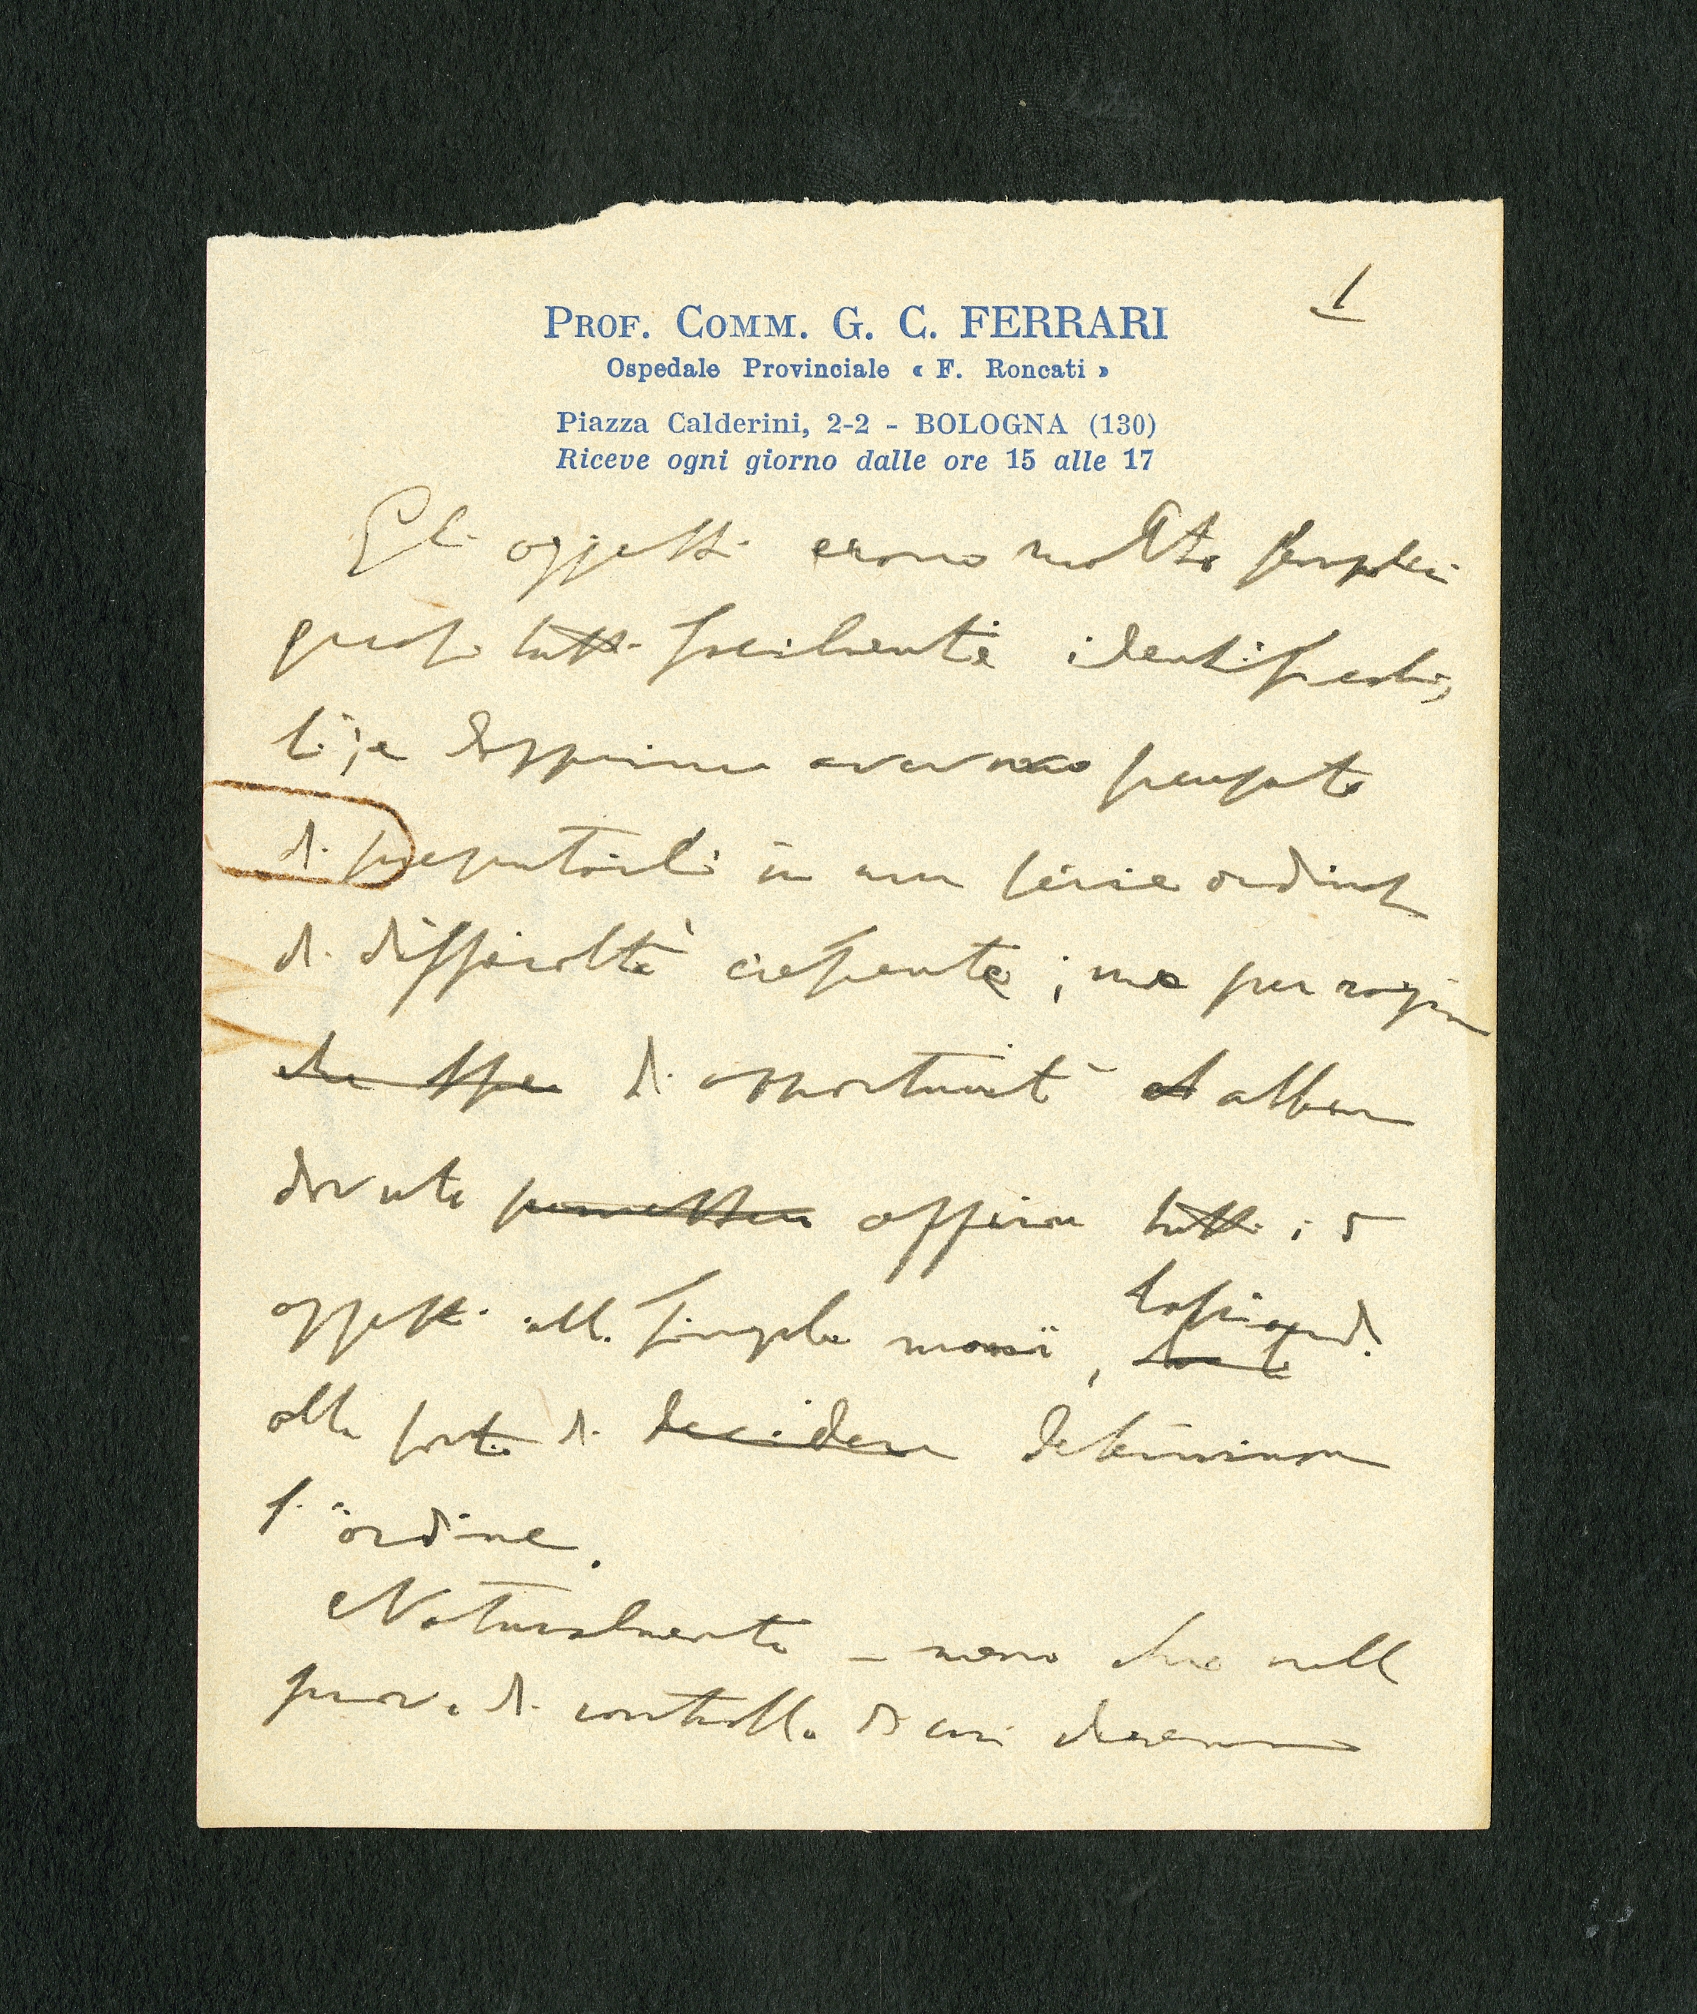 1
PROF. COMM. G. C. FERRARI
Ospedale Provinciale « F. Roncati »
Piazza Calderini, 2-2 - BOLOGNA (130)
Riceve ogni giorno dalle ore 15 alle 17
Gli oggetti erano molto semplici
quasi tutti facilmente identificabi,
li; e dapprima avevamo pensato
di presentarli in una serie ordinata
di difficoltà crescente; ma per ragioni
che di opportunità abbiamo
dovuto permettere offrire tutti i 5
oggetti alle singole mani, lasciando
alla sorte di decidere determinare
l'ordine.
Naturalmente - meno che nelle
prove di controllo di cui diremo